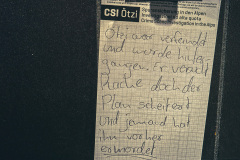 CSI Ötzi
Ötzi war verfeindet
und wurde hinter-
gangen. Er versucht
Rache doch der
Plan scheitert
und jemand hat
ihn vorher
ermordet